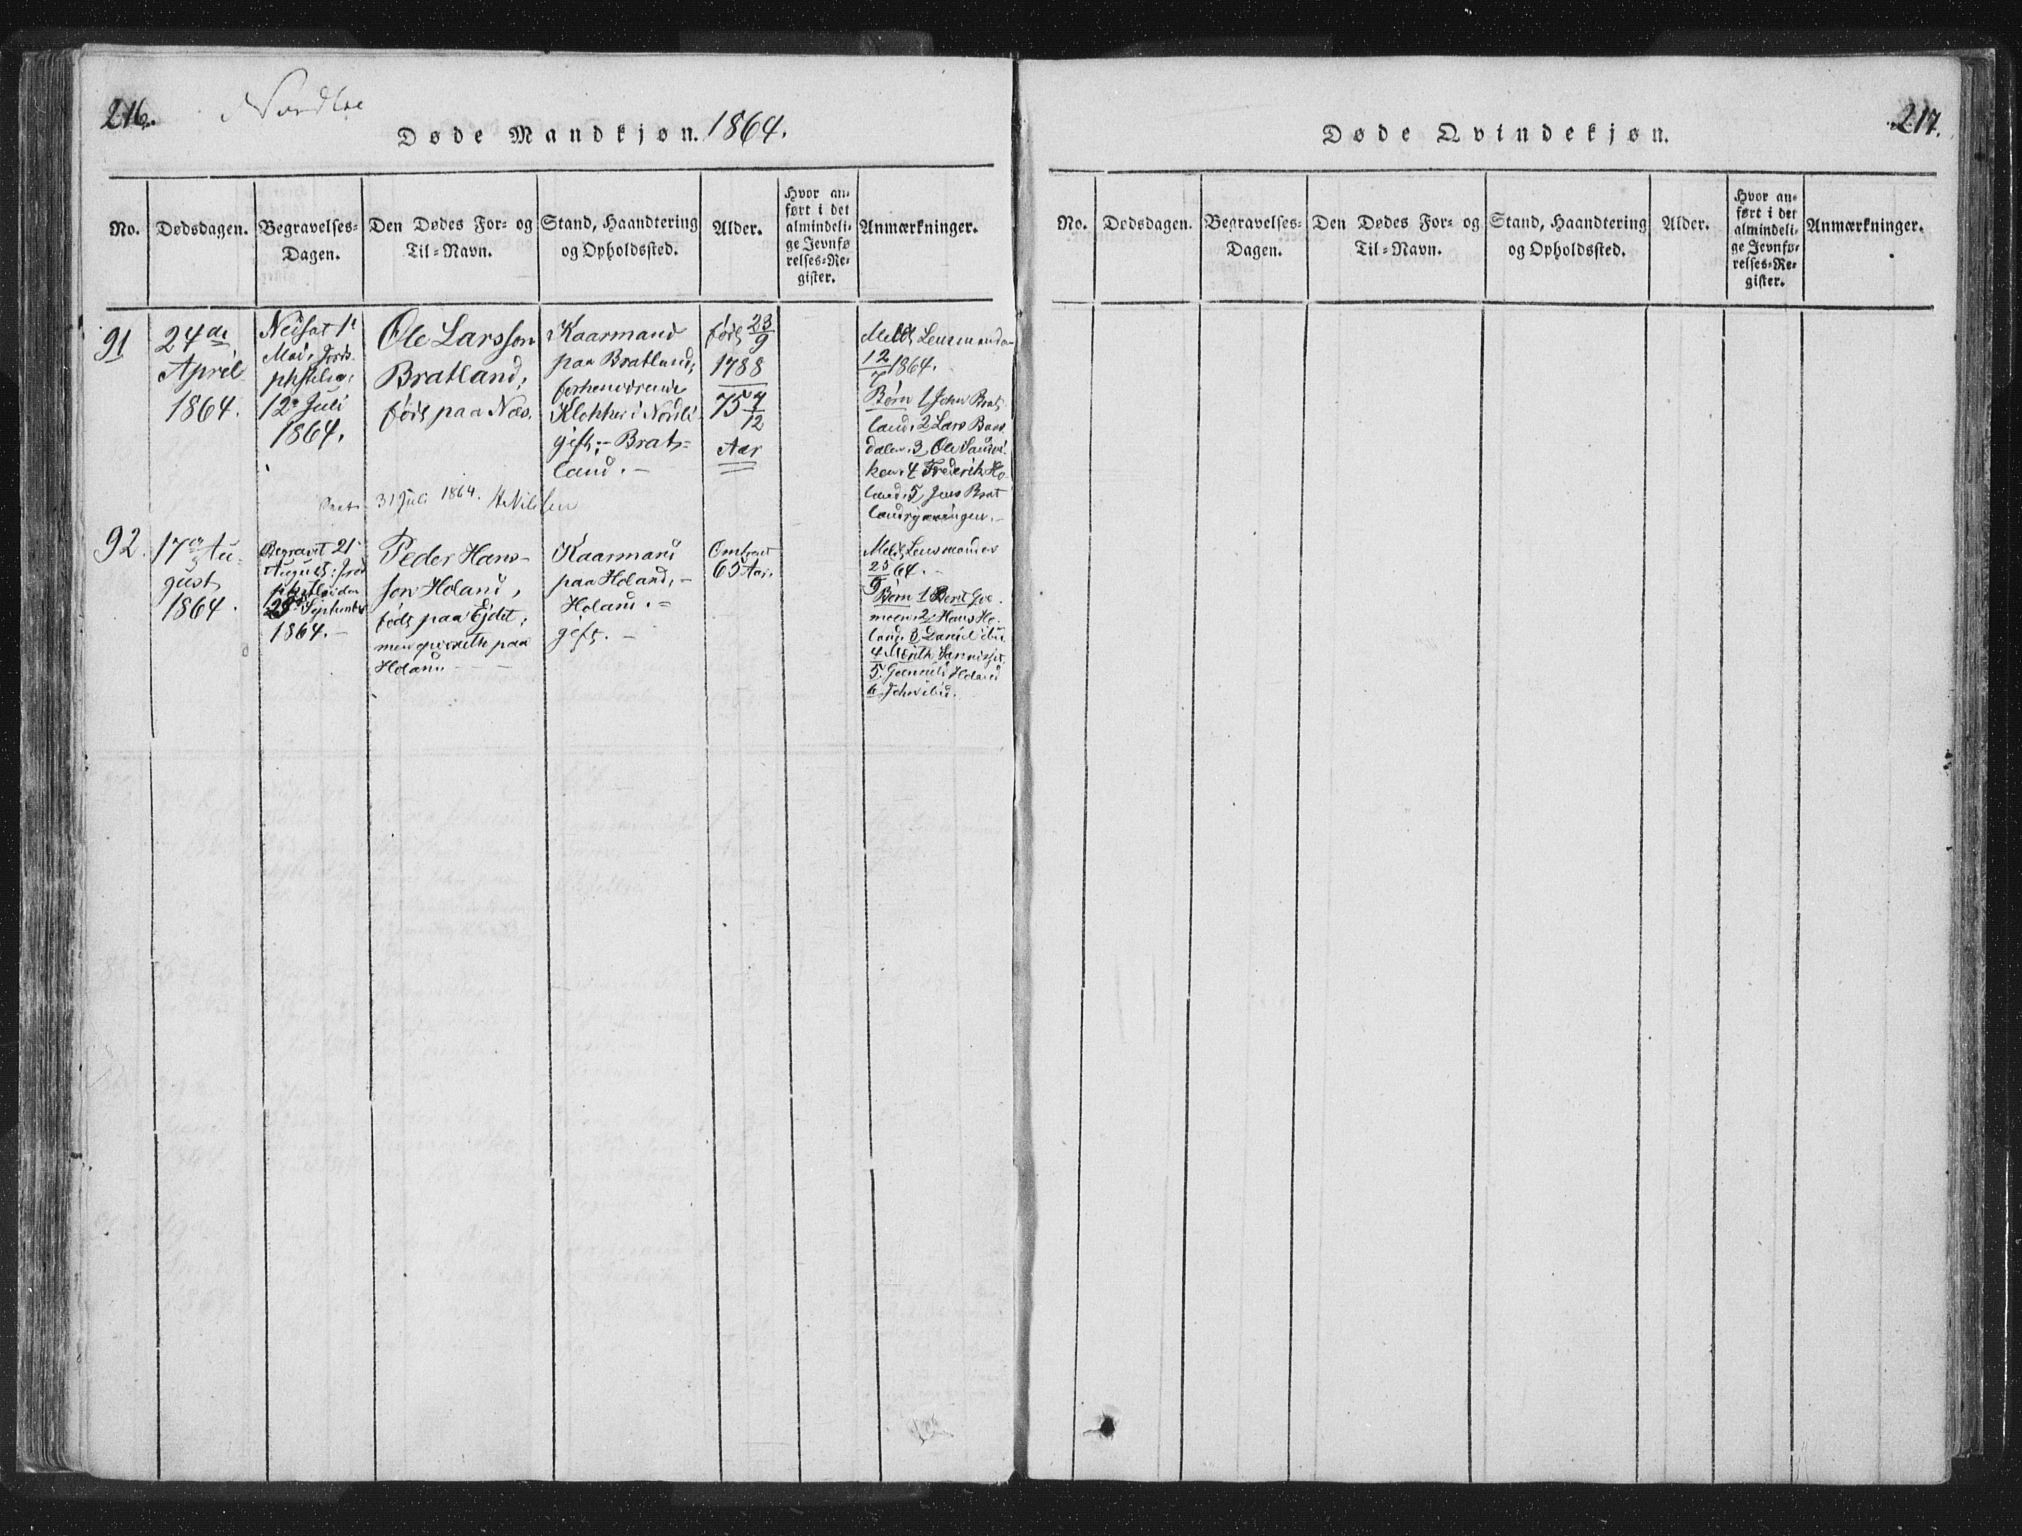 216.
Døde Mandkjøn. 1864.
No.
Dødsdagen.
Begravelses-
Dagen.
Den Dødes For- og
Til-Navn.
Stand, Haandtering
og Opholdssted.
Alder.
Hvor an-
ført i det
almindeli-
ge Jevnfø
relses-Re-
gister.
Anmærkninger.
91
24de
April
1864.
Nedsat 1e
Mai, Jords-
12e Juli
1864.
Ole Larsson
Bratland,
født paa Næs.
Kaarmand
paa Bratland,
forhenværende
Klokker i Nordli
gift. - Brat-
land. -
født 23/9
1788
75 7/12
Aar
Meldt Lensmanden
12/7 1864.
Børn 1 John Brat-
land, 2 Lars
dalen 3, Ole Sandvi-
ken, 4 Frederik Ho-
land, 5, Jens Brat
31 Juli 1864. Nilssen
92.
17de Au-
gust
1864.
Begravet 21e
August, Jord
28de September
1864. -
Peder Hans-
son Holand,
født paa Ejdet,
men opvoxte paa
Holand. - -
Kaarmand
paa Holand, -
Holand. -
gift. -
Omtrent
65 Aar.
Meldt Lensmanden
25/9 64. -
Børn 1 Berit
2, Hans Ho-
land, 3 Daniel ibid
4 Merth
5. Holand
6. John ibid.
217.
Døde Qvindekjøn.
No.
Dødsdagen.
Begravelses-
Dagen.
Den Dødes For- og
Til-Navn.
Stand, Haandtering
og Opholdssted.
Alder.
Hvor an-
ført i det
almindeli-
ge Jevnfø-
relses-Re-
gister.
Anmærkninger.